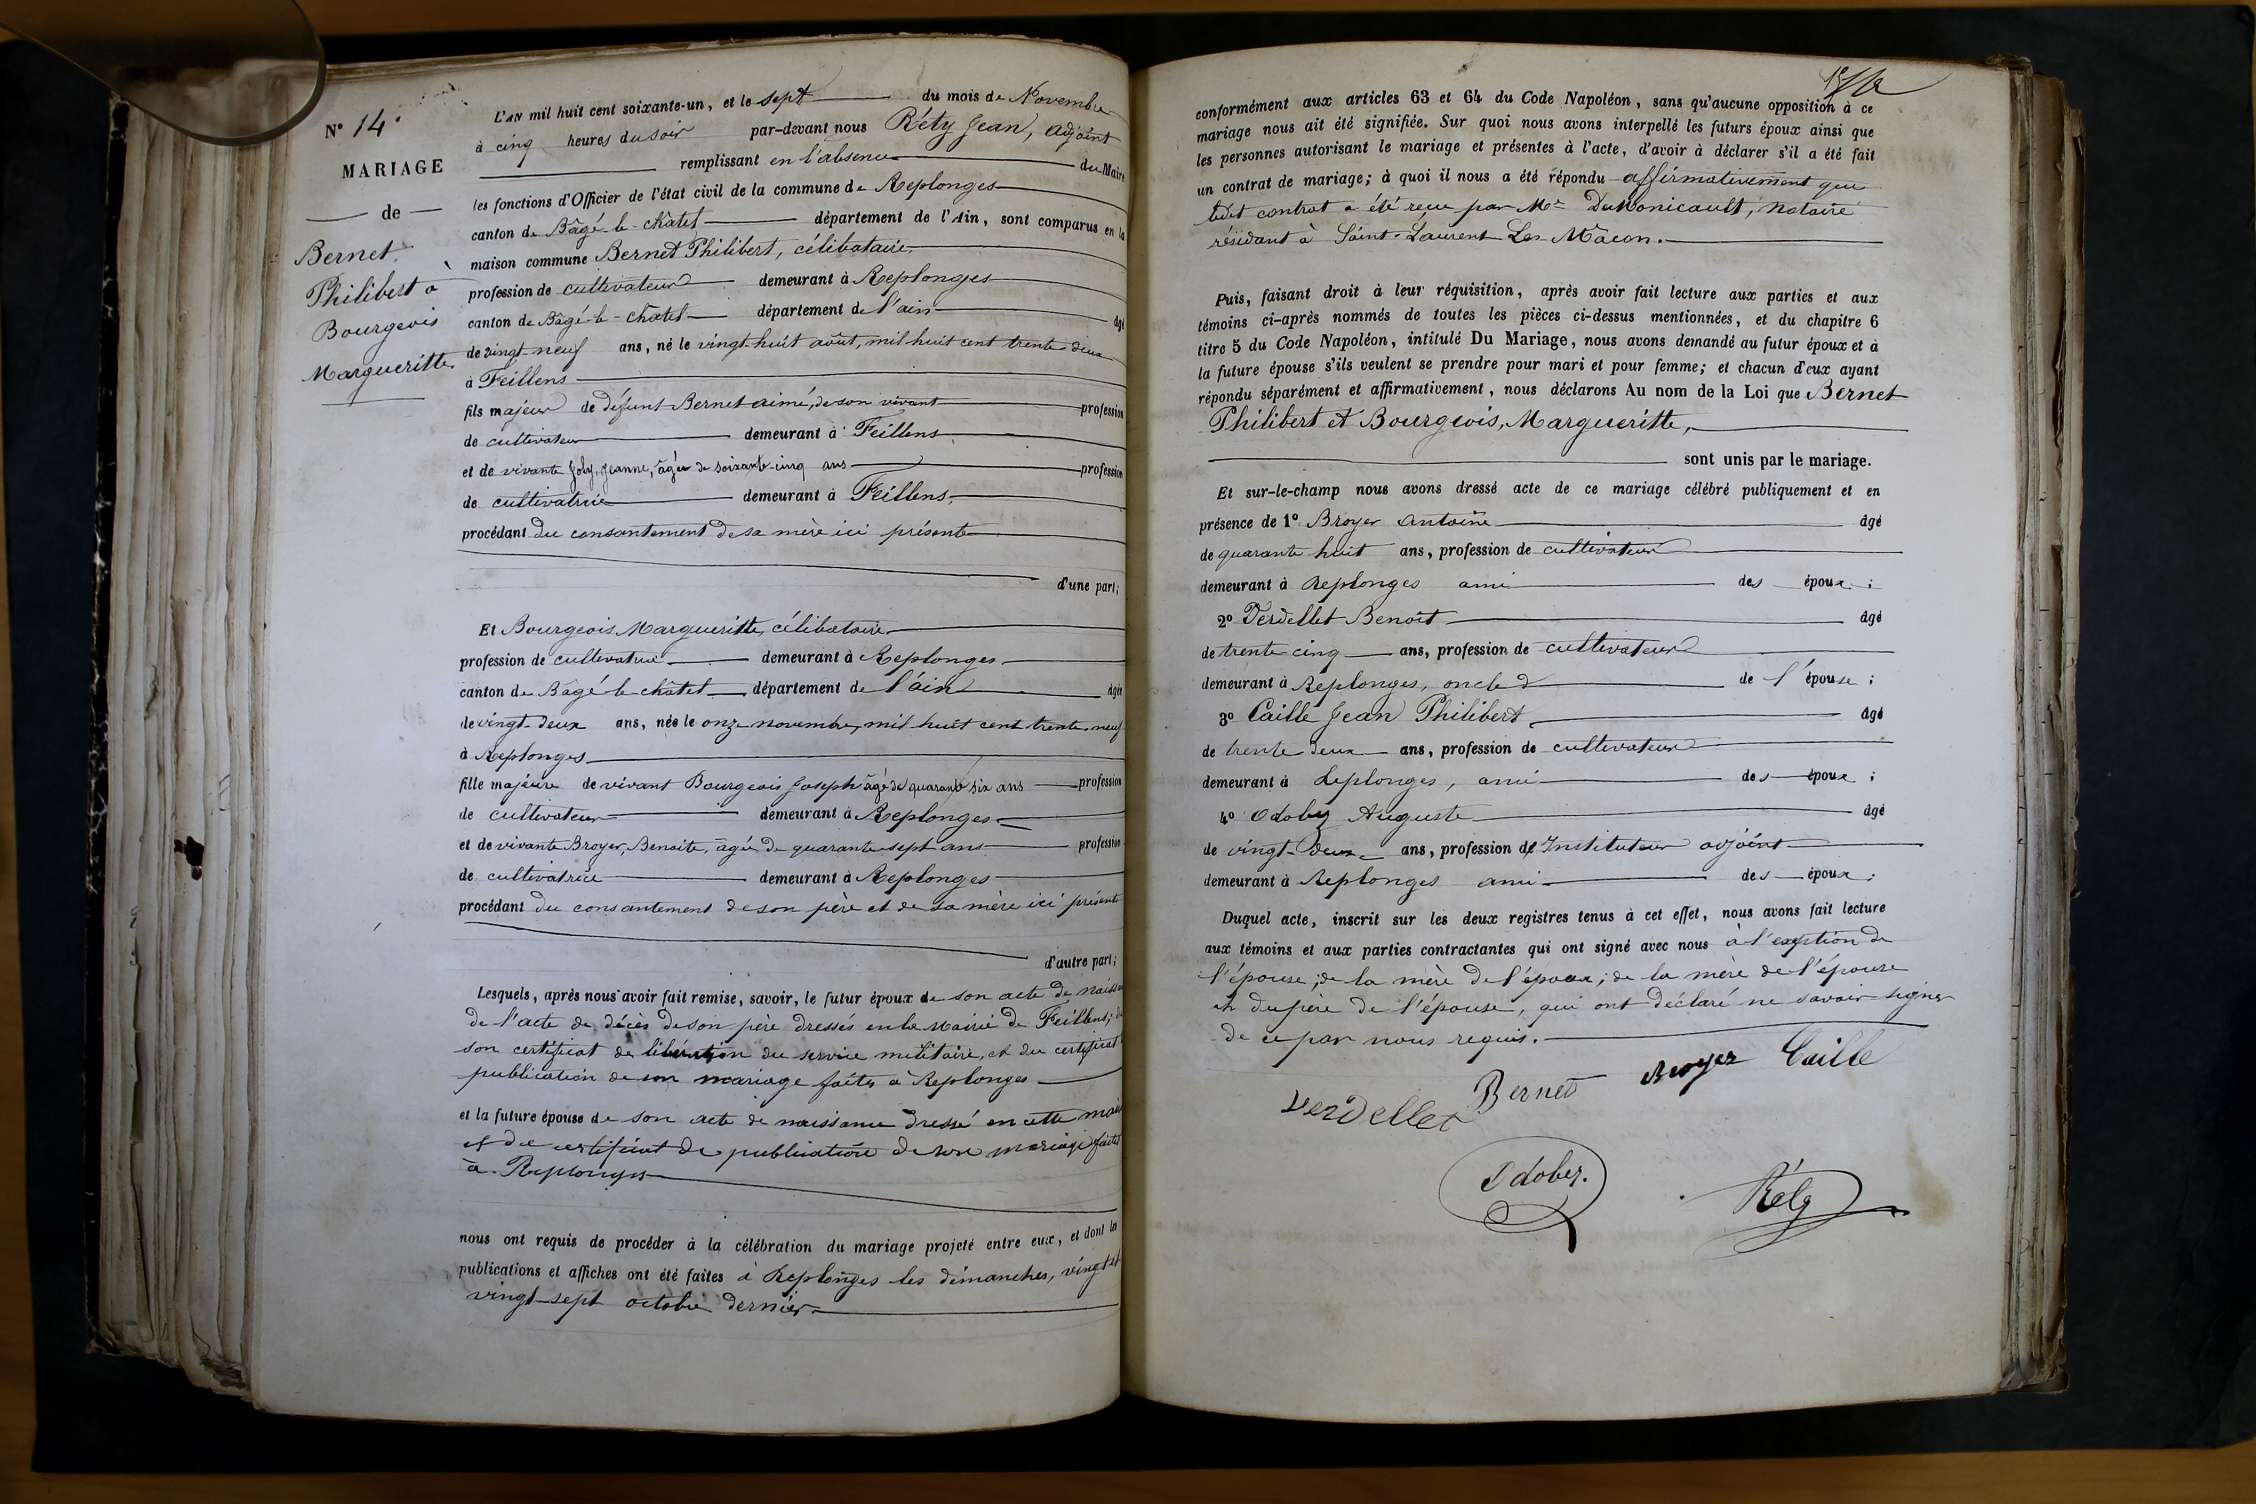 N° 14.
MARIAGE
de
Bernet
Philibert à
Bourgeois
Margueritte
L'AN mil huit cent soixante-un, et le sept du mois de Novembre
à cinq heures du soir par-devant nous Réty Jean, adjoint
remplissant en l'absence du Maire
les fonctions d'Officier de l'état civil de la commune de Replonges
canton de Bâgé-le-châtel département de l'Ain, sont comparus en la
maison commune Bernet Philibert, célibataire,
profession de cultivateur demeurant à Replonges
canton de Bâgé-le-châtel département de l'ain âgé
de vingt-neuf ans, né le vingt-huit août, mil huit cent trente deux
à Feillens
fils majeur de défunt Bernet aimé, de son vivant profession
de cultivateur demeurant à Feillens
et de vivante Joly, Jeanne, âgée de soixante-cinq ans profession
de cultivatrice demeurant à Feillens,
procédant du consantement de sa mère ici présente
d'une part;
Et Bourgeois Margueritte, célibataire
profession de cultivatrice demeurant à Replonges
canton de Bâgé-le-châtel département de l'ain âgée
de vingt-deux ans, née le onze novembre, mil huit cent trente-neuf
à Replonges
fille majeure de vivant Bourgeois Joseph âgé de quarante six ans profession
de cultivateur demeurant à Replonges
et de vivante Broyer, Benoite, âgée de quarante-sept ans profession
de cultivatrice demeurant à Replonges
procédant du consantement de son père et de sa mère ici présents
d'autre part;
Lesquels, après nous avoir fait remise, savoir, le futur époux de son acte de
de l'acte de décès de son père dressés en la Mairie de Feillens;
son certificat de libération du service militaire, et du certificat
publication de son mariage faites à Replonges
et la future épouse de son acte de naissance dressé en cette
et de certificat de publication de son mariage faites
à Replonges
nous ont requis de procéder à la célébration du mariage projeté entre eux, et dont les
publications et affiches ont été faites à Replonges les dimanches, vingt et
vingt-sept octobre dernier.
conformément aux articles 63 et 64 du Code Napoléon, sans qu'aucune opposition à ce
mariage nous ait été signifiée. Sur quoi nous avons interpellé les futurs époux ainsi que
les personnes autorisant le mariage et présentes à l'acte, d'avoir à déclarer s'il a été fait
un contrat de mariage; à quoi il nous a été répondu affirmativement que
ledit contrat a été reçu par Me notaire
résidant à Saint-Laurent Les Mâcon.
Puis, faisant droit à leur réquisition, après avoir fait lecture aux parties et aux
témoins ci-après nommés de toutes les pièces ci-dessus mentionnées, et du chapitre 6
titre 5 du Code Napoléon, intitulé Du Mariage, nous avons demandé au futur époux et à
la future épouse s'ils veulent se prendre pour mari et pour femme; et chacun d'eux ayant
répondu séparément et affirmativement, nous déclarons Au nom de la Loi que Bernet
Philibert et Bourgeois, Margueritte,
sont unis par le mariage.
Et sur-le-champ nous avons dressé acte de ce mariage célébré publiquement et en
présence de 1° Broyer Antoine âgé
de quarante huit ans, profession de cultivateur
demeurant à Replonges ami des époux;
2° Verdellet Benoît âgé
de trente cinq ans, profession de cultivateur
demeurant à Replonges, oncle de l'épouse;
3° Caille Jean Philibert, âgé
de trente deux ans, profession de cultivateur
demeurant à Replonges, ami des époux;
4° Odobez Auguste âgé
de vingt-deux ans, profession d'Instituteur adjoint
demeurant à Replonges ami des époux;
Duquel acte, inscrit sur les deux registres tenus à cet effet, nous avons fait lecture
aux témoins et aux parties contractantes qui ont signé avec nous à l'exeption de
l'épouse; de la mère de l'époux; de la mère de l'épouse
et du père de l'épouse, qui ont déclaré ne savoir signer
de ce par nous requis.
Bernet Broyer Caille
Verdellet
Odobez. Réty